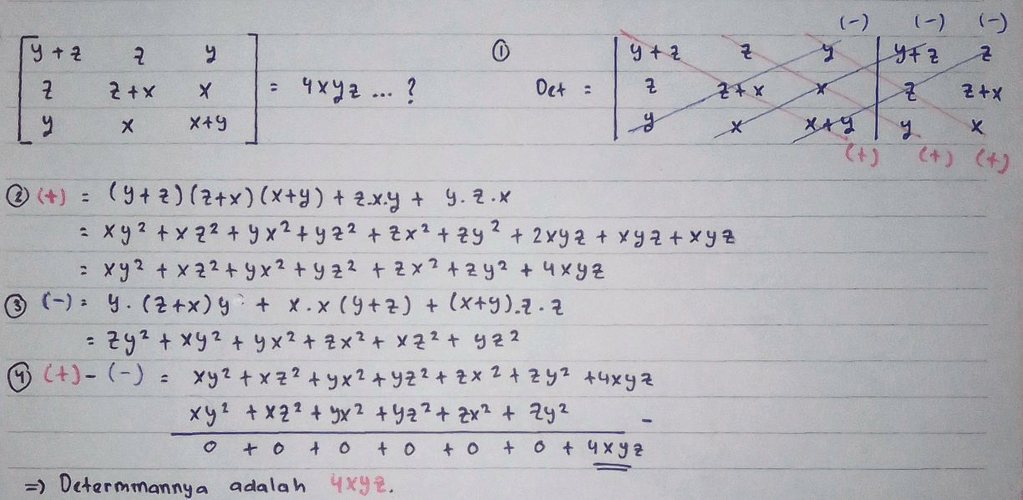 (-) (-) (-)
[ y+z z y ] ① | y+z z y | y+z z
[ z z+x x ] = 4xyz ... ? Det = | z z+x x | z z+x
[ y x x+y ] | y x x+y | y x
(+) (+) (+)
② (+) = (y+z)(z+x)(x+y) + z.x.y + y.z.x
= xy² + xz² + yx² + yz² + zx² + zy² + 2xyz + xyz + xyz
= xy² + xz² + yx² + yz² + zx² + zy² + 4xyz
③ (-) = y.(z+x)y + x.x(y+z) + (x+y).z.z
= zy² + xy² + yx² + zx² + xz² + yz²
④ (+) - (-) = xy² + xz² + yx² + yz² + zx² + zy² + 4xyz
xy² + xz² + yx² + yz² + zx² + zy² -
0 + 0 + 0 + 0 + 0 + 0 + 4xyz
=> Determinannya adalah 4xyz.